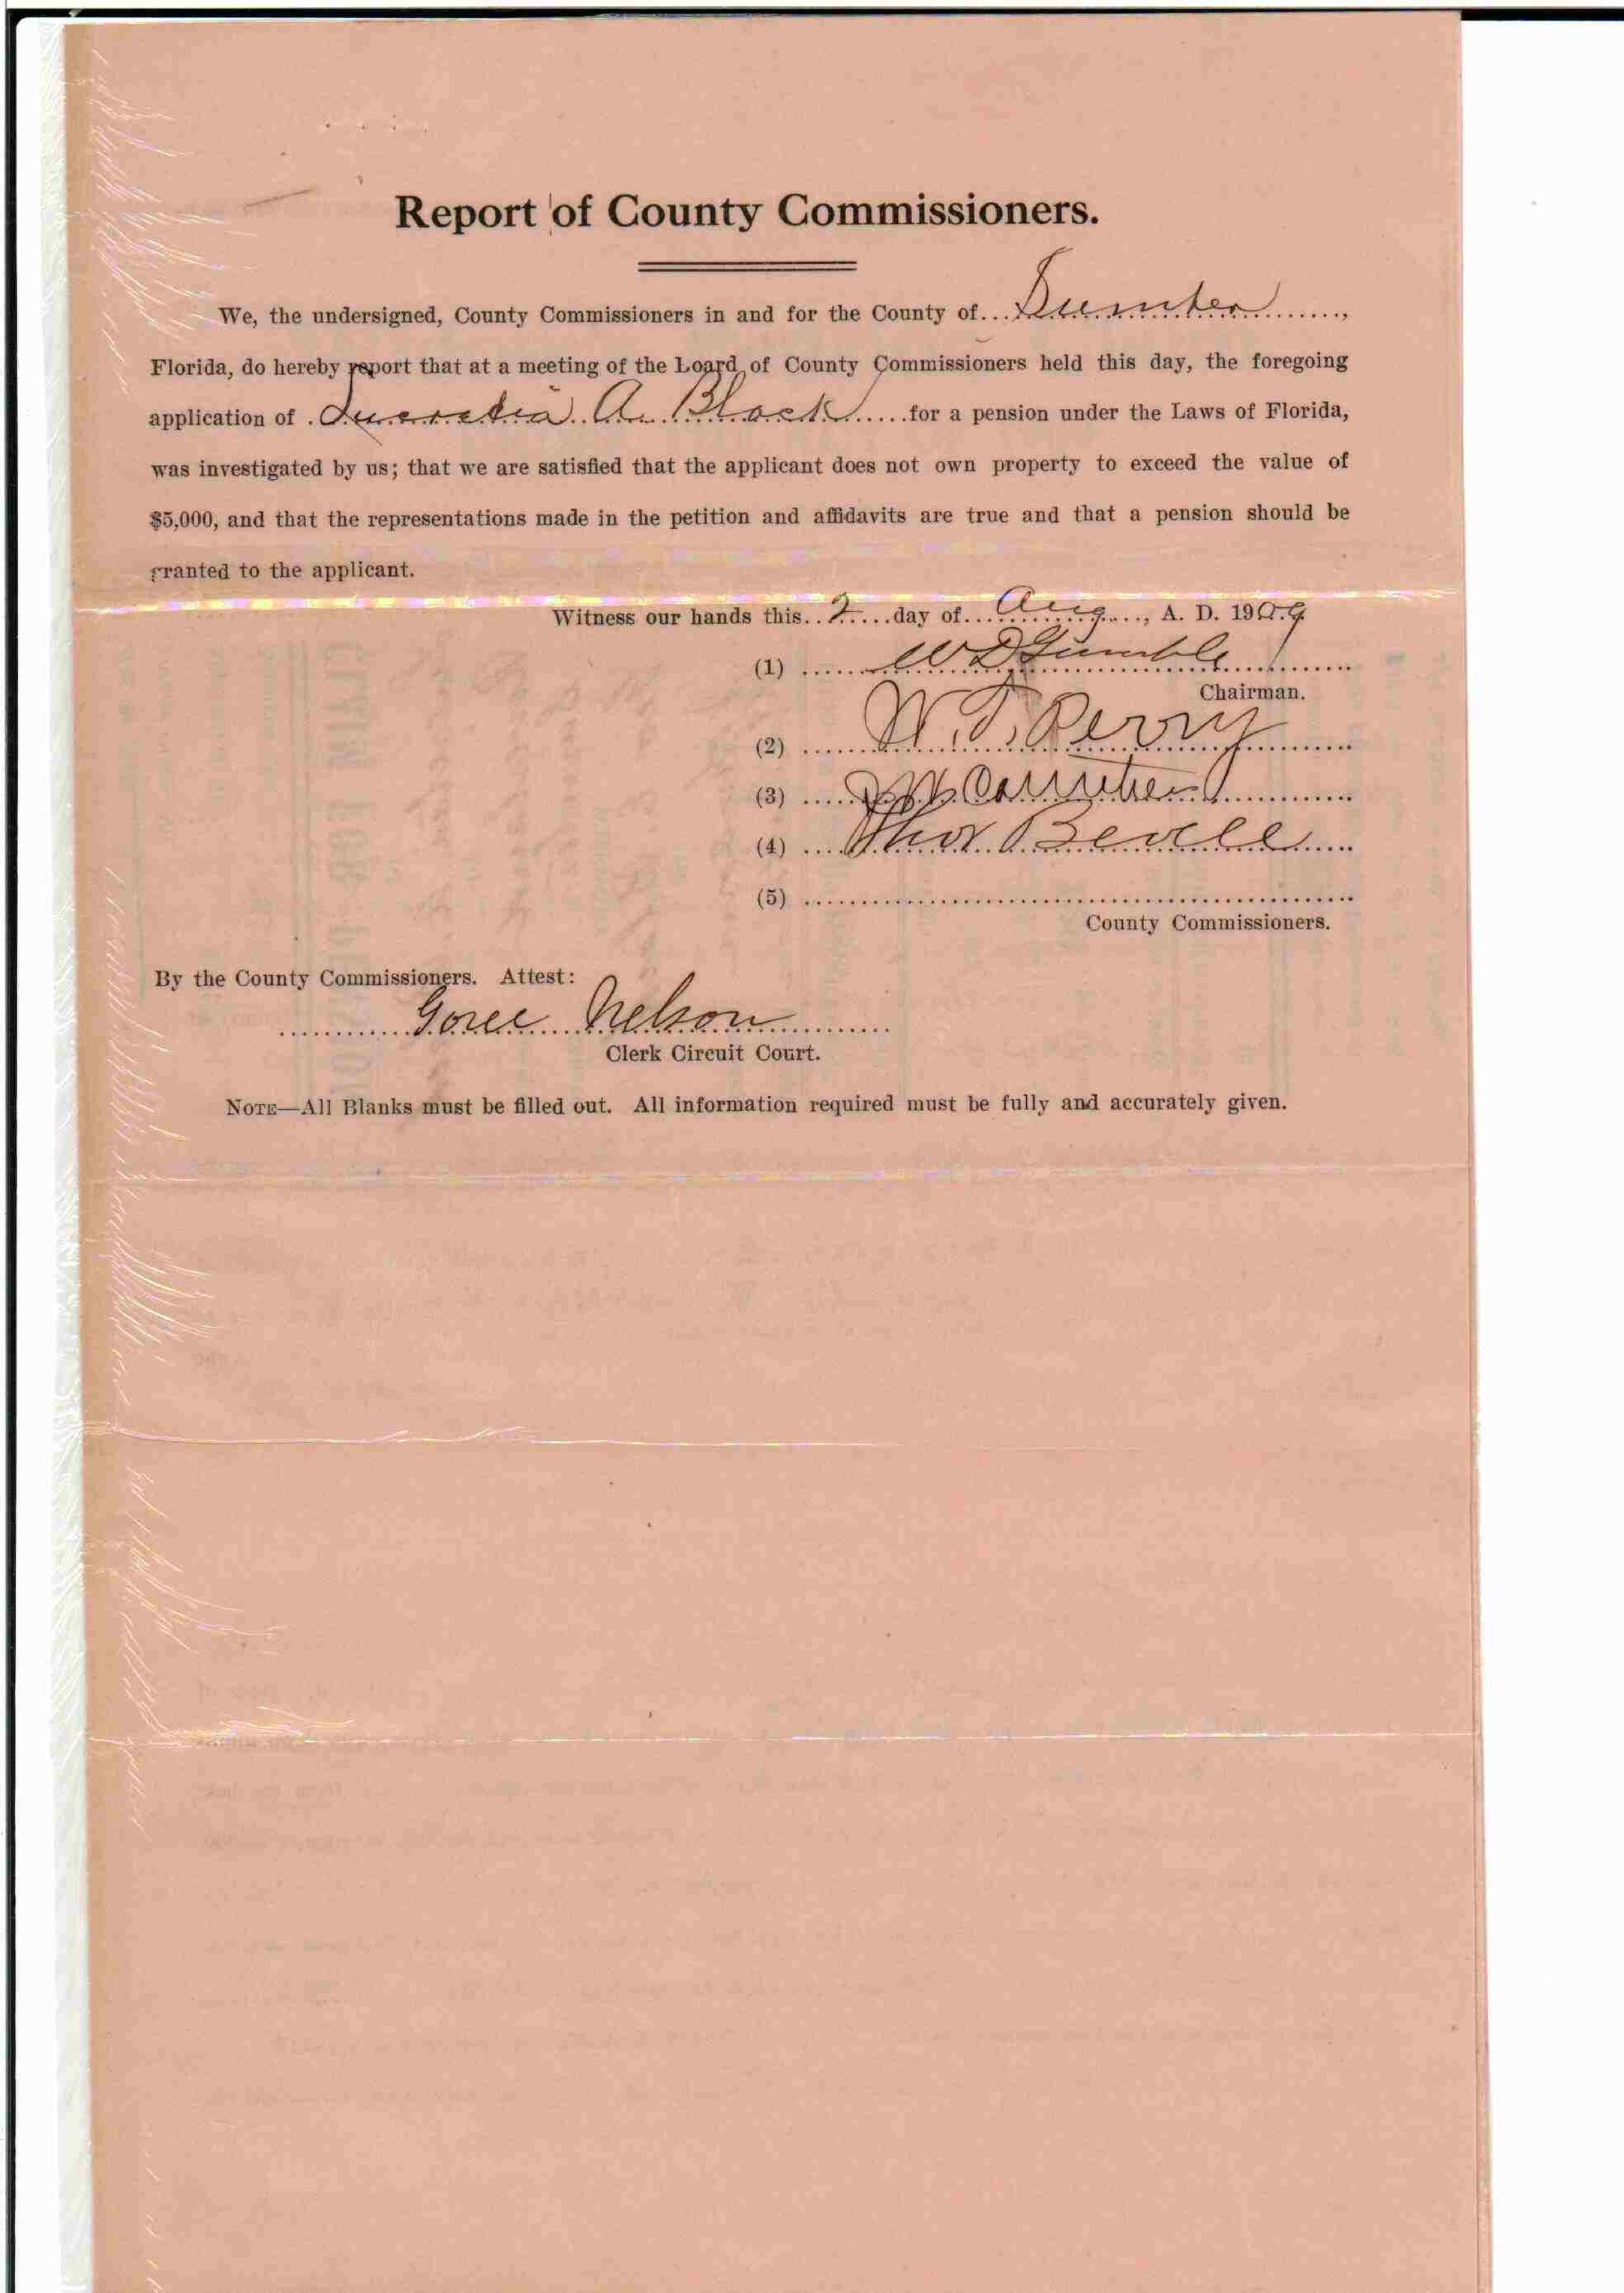 Report of County Commissioners.
We, the undersigned, County Commissioners in and for the County of... Sumter ......,
Florida, do hereby report that at a meeting of the Loard of County Commissioners held this day, the foregoing
application of . Lucretia A. Black .....for a pension under the Laws of Florida,
was investigated by us; that we are satisfied that the applicant does not own property to exceed the value of
$5,000, and that the representations made in the petition and affidavits are true and that a pension should be
granted to the applicant.
Witness our hands this.. 2 ....day of... Aug ...., A. D. 1909
(1)
Chairman.
(2) W. T. Perry
(3)
(4) Thos Bevill
(5)
County Commissioners.
By the County Commissioners. Attest:
Goree Nelson
Clerk Circuit Court.
NOTE—All Blanks must be filled out. All information required must be fully and accurately given.